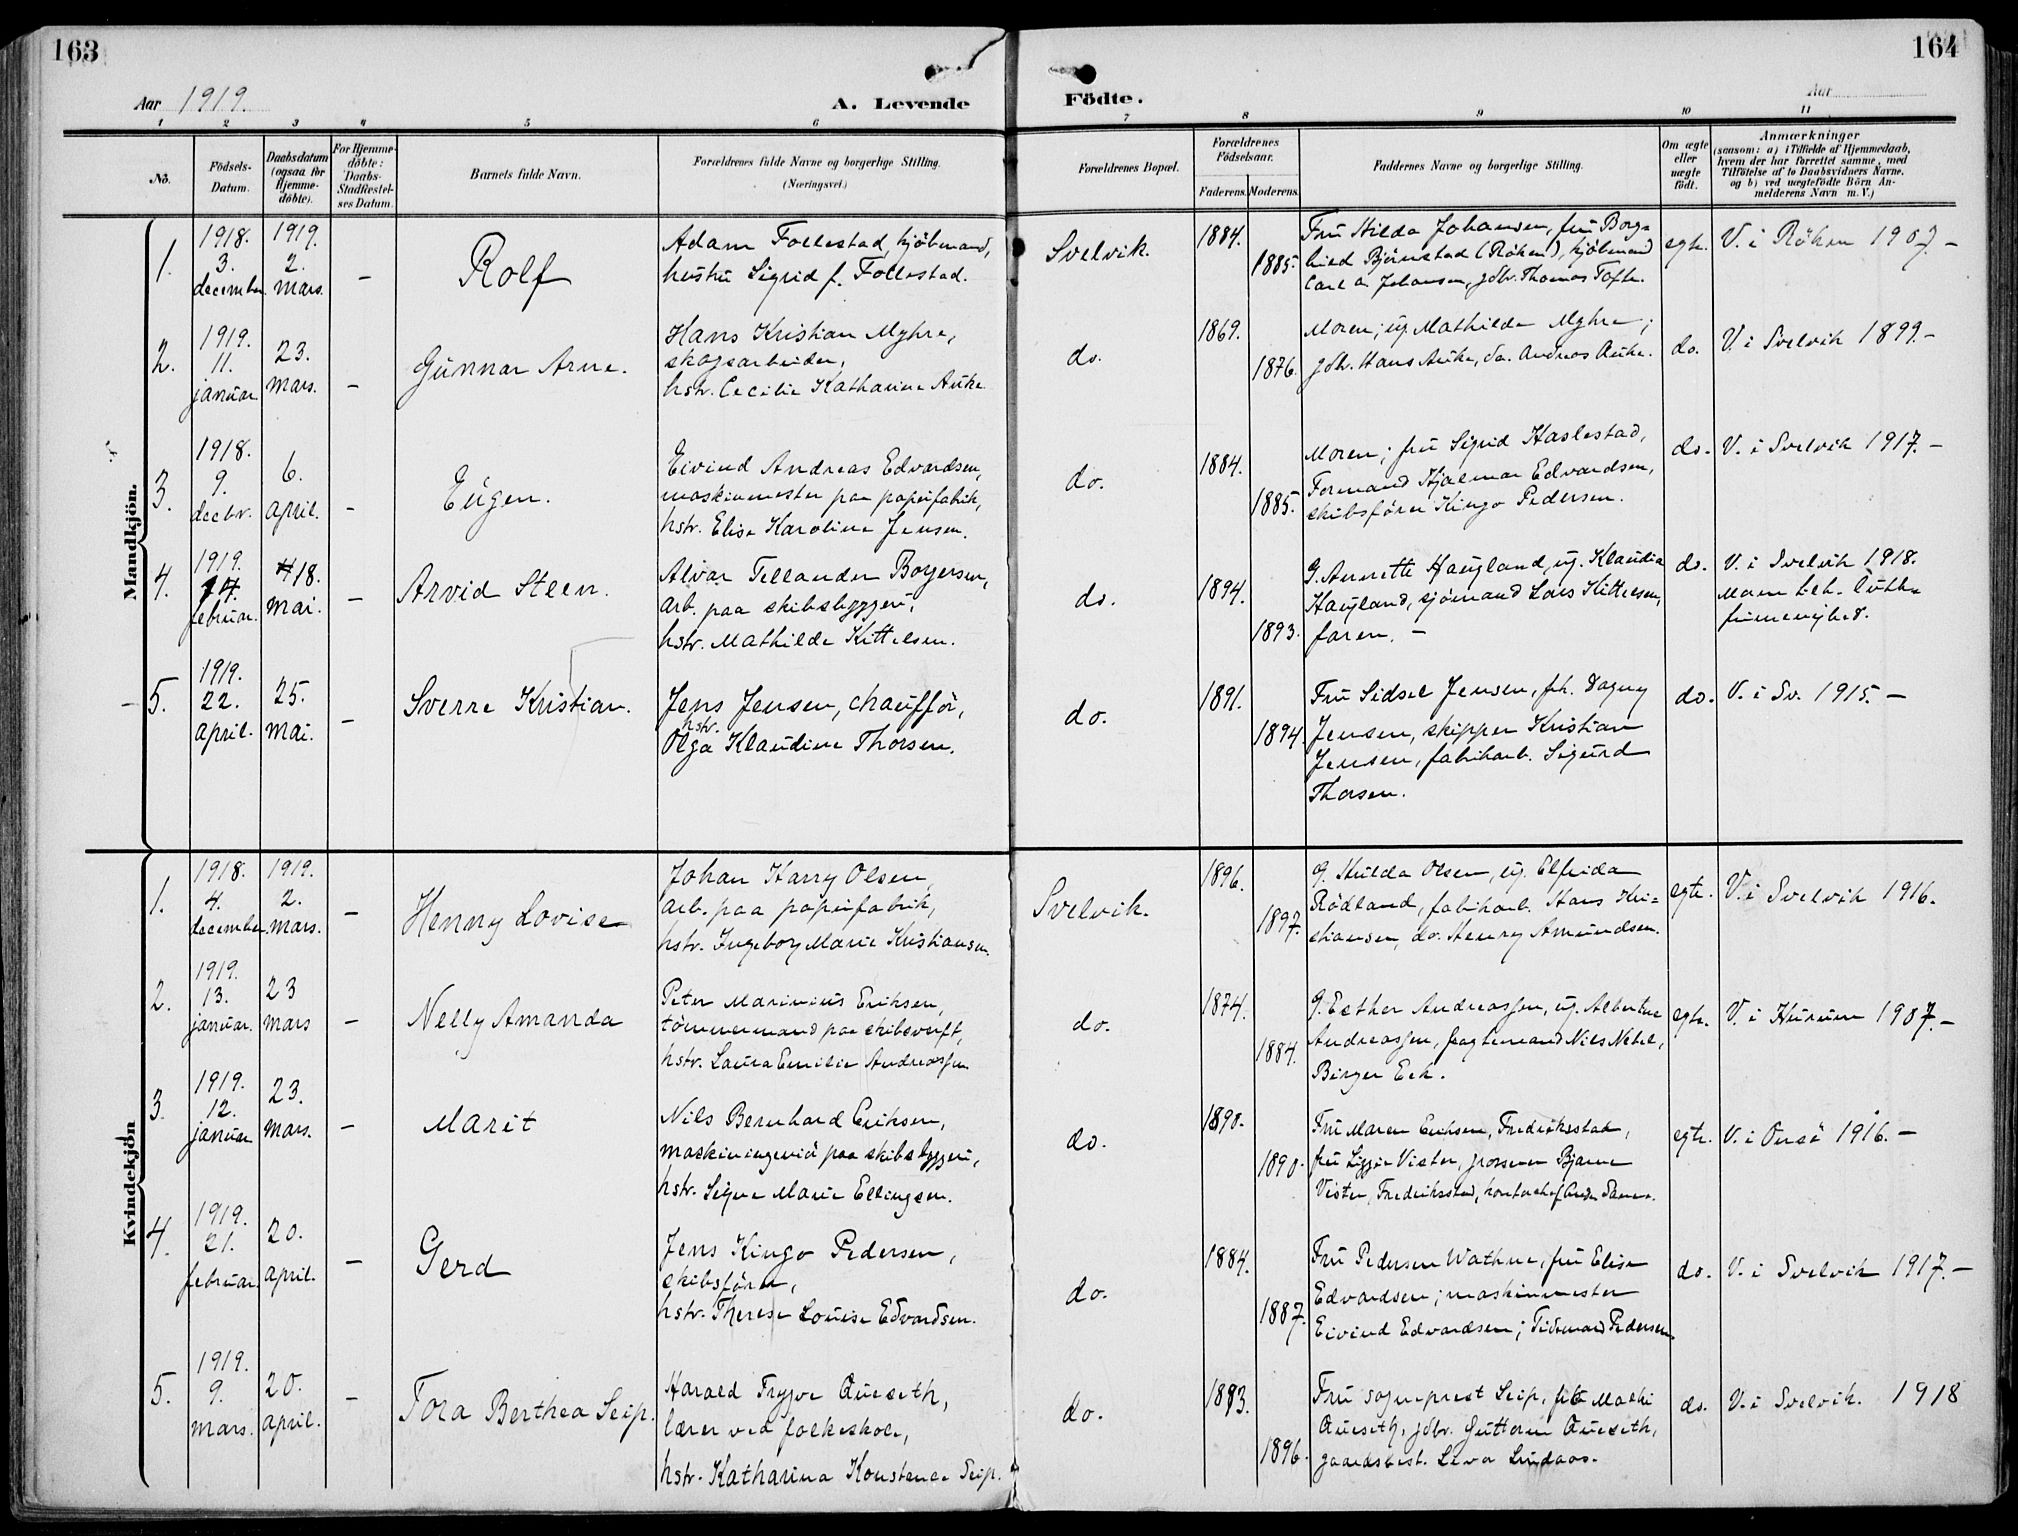 163
164
Aar 1919.
A. Levende
Födte.
Aar
1 2 3 4 5 6 7 8 9 10 11
No.
Födsels-
Datum.
Daabsdatum
(ogsaa for
Hjemme-
döbte).
For Hjemme-
döbte:
Daabs-
Stadfæstel-
ses Datum.
Barnets fulde Navn.
Forældrenes fulde Navne og borgerlige Stilling.
(Næringsvei.)
Forældrenes Bopæl.
Forældrenes
Födselsaar.
Faderens. Moderens.
Faddernes Navne og borgerlige Stilling.
Om ægte
eller
uægte
födt.
Anmærkninger
(saasom: a) i Tilfælde af Hjemmedaab,
hvem der har forrettet samme, med
Tilföielse af to Daabsvidners Navne,
og b) ved uægtefödte Börn An-
melderens Navn m. V.)
Mandkjön.
1.
1918.
3.
december.
1919.
2.
mars.
–
Rolf
Adam Follestad, kjöbmand,
hustru Sigrid f. Follestad.
Svelvik.
1884.
1885.
Fru Hilda Johansen, fru Borg-
hild Bjørnstad (Røken), kjöbmand
Carl A. Johansen, gdbr. Thomas Tofte.
egte.
V. i Röken 1907.–
2.
1919.
11.
januar
23.
mars.
–
Gunnar Arne.
Hans Kristian Myhre,
skogsarbeider,
hstr. Cecilie Katharine Auke
do.
1869.
1876.
Moren; ug. Mathilde Myhre;
gdbr. Hans Auke, do. Andreas Auke.
do.
V. i Svelvik 1899.–
3.
1918.
9.
decbr.
6.
april.
–
Eugen.
Eivind Andreas Edvardsen,
maskinmester paa papirfabrik,
hstr. Elise Karoline Jensen.
do.
1884.
1885.
Moren; fru Sigrid Haslestad,
Formand Hjalmar Edvardsen,
skibsfören Kingo Pedersen.
do.
V. i Svelvik 1917.–
4.
1919.
14.
februar.
18.
mai.
–
Arvid Steen.
Alvar Tellander Borgersen,
arb. paa skibsbyggeri,
hstr. Mathilde Kittelsen.
do.
1894.
1893.
G. Annette Haugland, ug. Klaudia
Haugland, sjömand Lars Kittelsen,
faren. –
do.
V. i Svelvik 1918.
Mor ev. luth.
frimenighed.
5.
1919.
22.
april.
25.
mai.
–
Sverre Kristian.
Jens Jensen, chaufför,
hstr.
Olga Klaudine Thorsen.
do.
1891.
1894.
Fru Sidsel Jensen, frk. Dagny
Jensen, skipper Kristian
Jensen, fabrikarb. Sigurd
Thorsen.
do.
V. i Sv. 1915.–
Kvindekjön
1.
1918.
4.
december.
1919.
2.
mars.
–
Henny Lovise
Johan Harry Olsen,
arb. paa papirfabrik,
hstr. Ingeborg Marie Kristiansen.
Svelvik.
1896.
1897.
G. Hulda Olsen, ug. Elfrida
Rödland, fabrikarb. Hans Kri-
stiansen, do. Henry Amundsen.
egte.
V. i Svelvik 1916.
2.
1919.
13.
januar.
23
mars
–
Nelly Amanda
Peter Marinius Eriksen,
tömmermand paa skibsverft,
hstr. Laura Emilie Andreassen
do.
1874.
1884.
G. Esther Andreassen, ug. Albertine
Andreassen, fragtemand Nils Nebel,
Birger Eek.
egte.
V. i Hurum 1907.–
3.
1919.
12.
januar
23.
mars.
–
Marit
Nils Bernhard Eriksen,
maskiningeniör paa skibsbyggeri,
hstr. Signe Marie Ellingsen.
do.
1890.
1890.
Fru Maren Eriksen, Fredriksstad,
fru Vister, grosserer Bjarne
Vister, Fredriksstad, kontorchef
egte.
V. i Onsö 1916.–
4.
1919.
21.
februar.
20.
april.
–
Gerd
Jens Kingo Pedersen,
skibsförer,
hstr. Therese Louise Edvardsen.
do.
1884.
1887.
Fru Pedersen Wathne, fru Elise
Edvardsen; maskinmester
Eivind Edvardsen; Tidemand Pedersen.
do.
V. i Svelvik 1917.–
5.
1919.
9.
mars.
20.
april.
–
Tora Berthea Seip.
Harald Trygve Queseth,
lærer ved folkeskole,
hstr. Katharina Konstance Seip.
do.
1893.
1896.
Fru sogneprest Seip, frk. Mathi
Queseth, gdbr. Guttorm Queseth,
gaardsbest. Leva Lindaas.
do.
V. i Svelvik. 1918